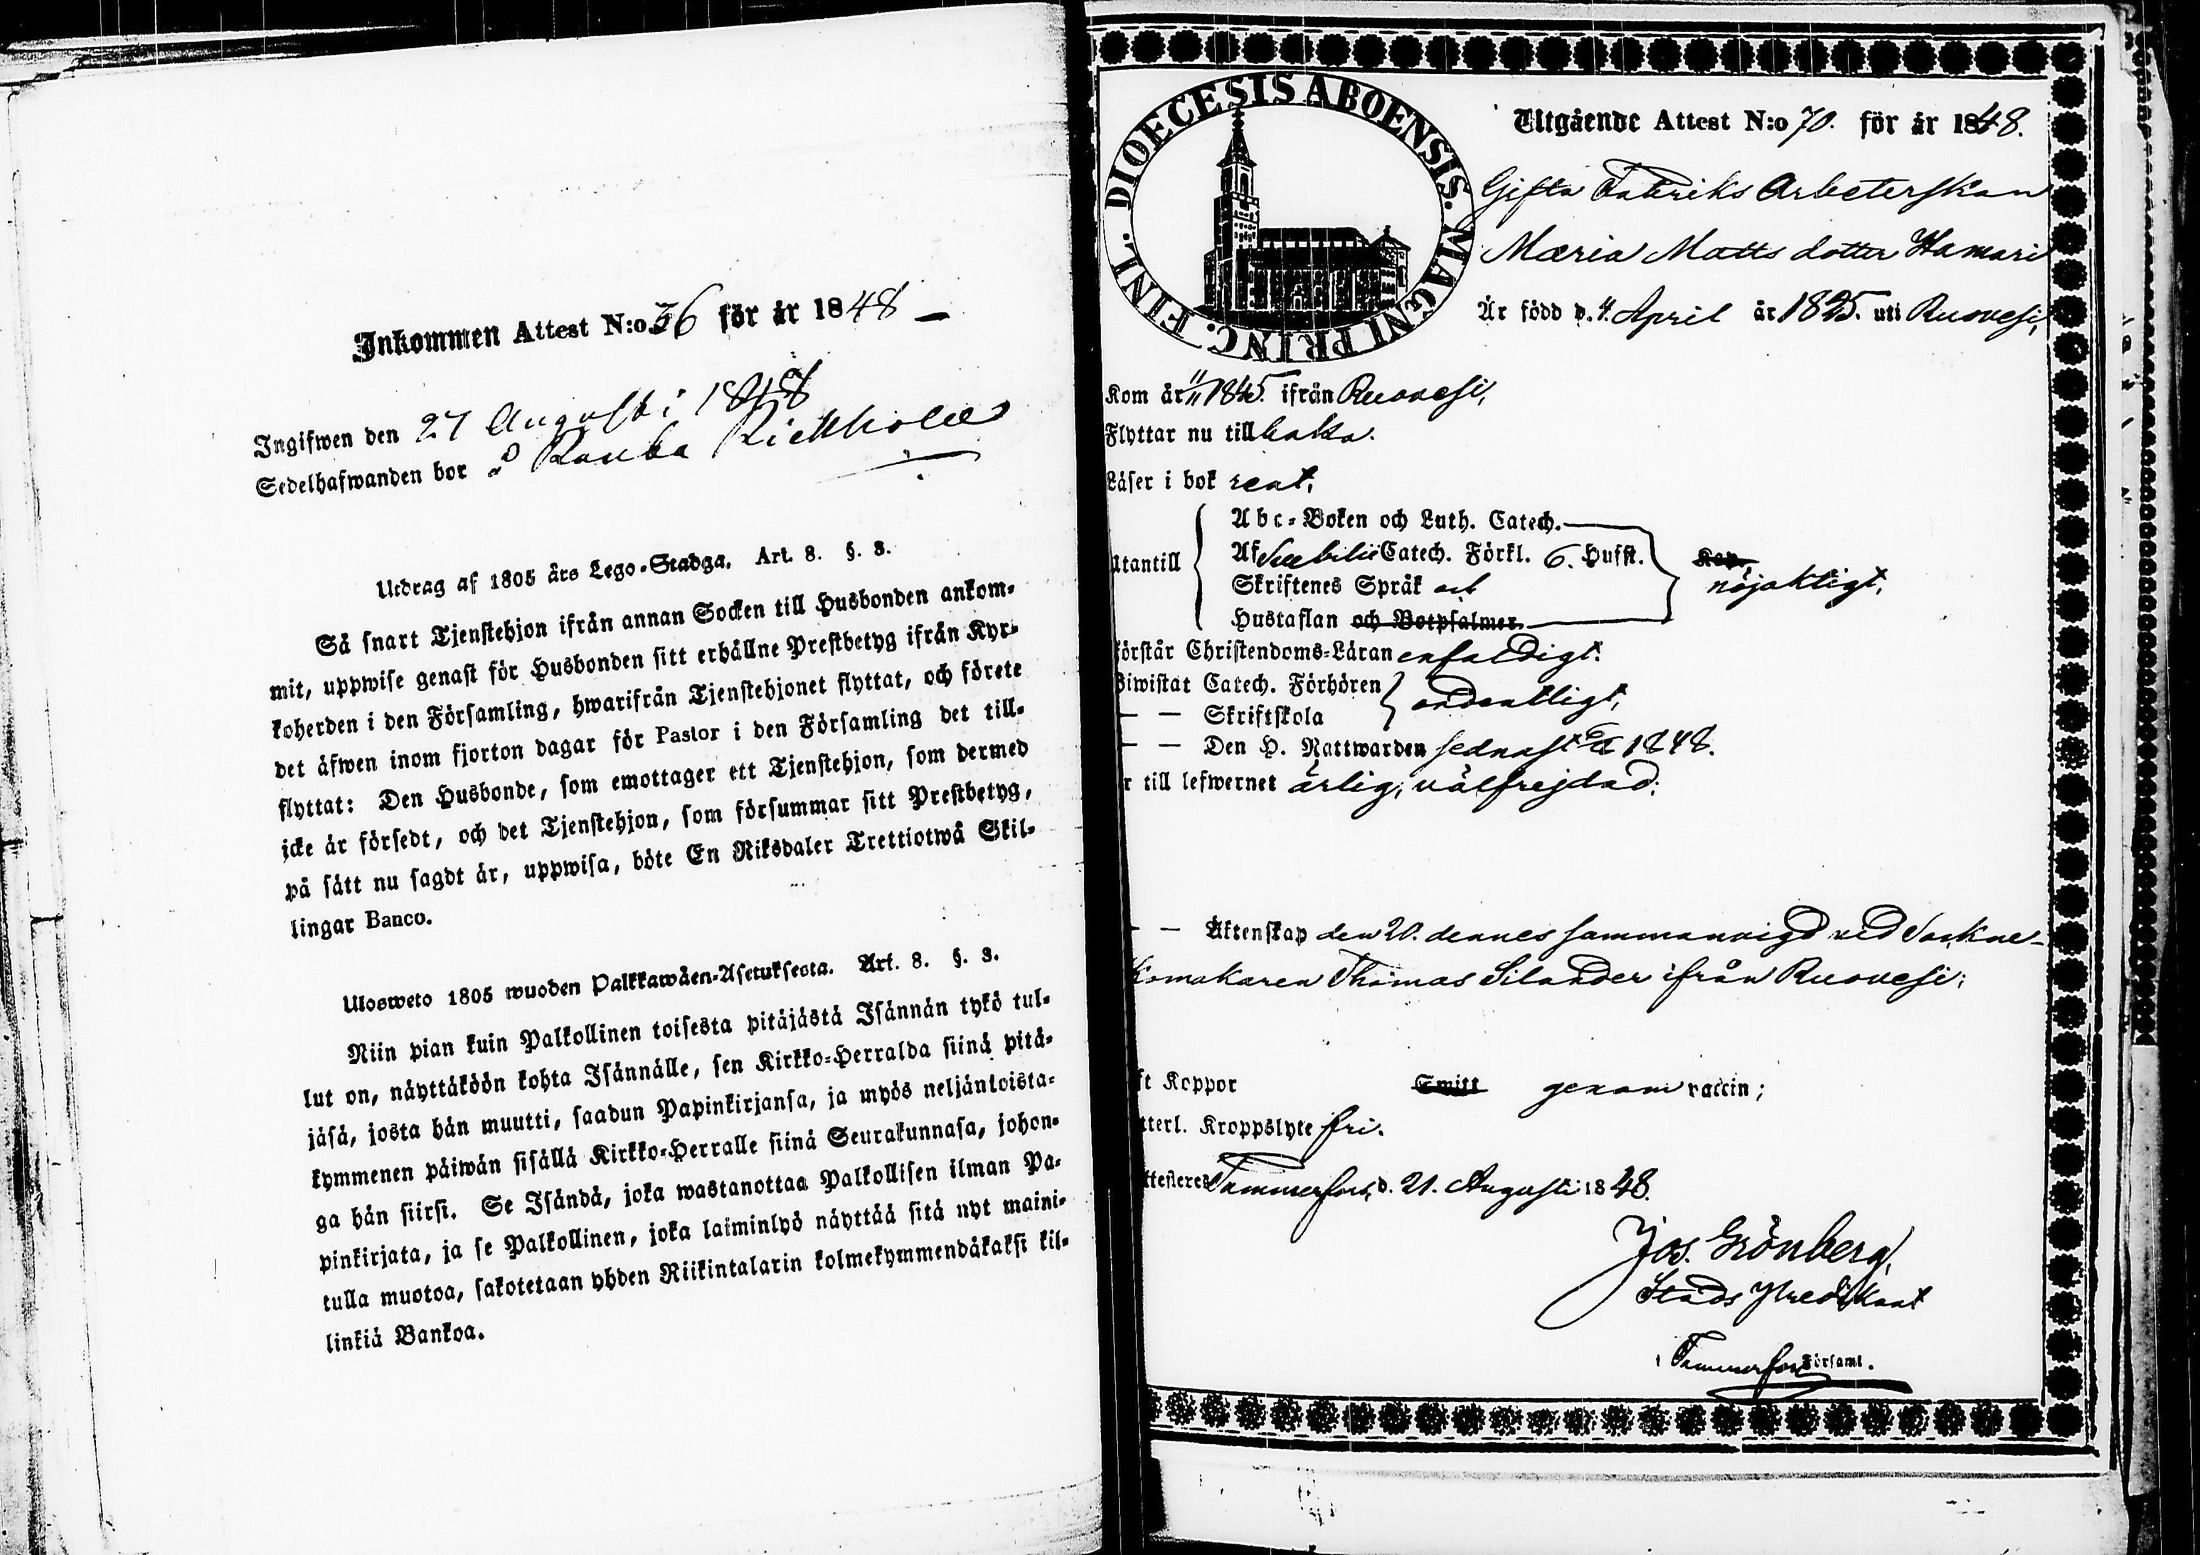 Inkommen Attest N:o 56 för år 1848
Ingifwen den 27 Augusti 1848
Sedelhafwanden bor å
Utdrag af 1805 års Lego-Stadga. Art. 8. §. 3.
Så snart Tjenstehjon ifrån annan Socken till Husbonden ankom-
mit, uppwise genast för Husbonden sitt erhållne Prestbetyg ifrån Kyr-
koherden i den Församling, hwarifrån Tjenstehjonet flyttat, och förete
det äfwen inom fjorton dagar för Pastor i den Församling det till-
flyttat: Den Husbonde, som emottager ett Tjenstehjon, som dermed
icke är försedt, och det Tjenstehjon, som försummar sitt Prestbetyg,
på sätt nu sagdt är, uppwisa, böte En Riksdaler Trettiotwå Skil-
lingar Banco.
Ulosweto 1805 wuoden Palkkawäen-Asetuksesta. Art. 8. §. 3.
Niin pian kuin Palkollinen toisesta pitäjästä Isännän tykö tul-
lut on, näyttäköön kohta Isännälle, sen Kirkko-Herralda siinä pitä-
jäsä, josta hän muutti, saadun Papinkirjansa, ja myös neljäntoista-
kymmenen päiwän sisällä Kirkko-Herralle siinä Seurakunnasa, johon-
ga hän siirsi. Se Isändä, joka wastanottaa Palkollisen ilman Pa-
pinkirjata, ja se Palkollinen, joka laiminlyö näyttää sitä nyt maini-
tulla muotoa, sakotetaan yhden Riikintalarin kolmekymmendäkaksi kil-
linkiä Bankoa.
DIOECESIS ABOENSIS. MAGNI PRINC. FINL.
Utgående Attest N:o 70. för år 1848.
Gifta Fabriks Arbeterskan
Maria Matts dotter Hamari
Är född d. 4. April år 1825. uti Ruovesi,
Kom år 1845. ifrån Ruovesi,
Flyttar nu tillbaka.
Läser i bok rent,
Utantill
Abc-Boken och Luth. Catech.
Af Svebilii Catech. Förkl. 6. Hufst.
Skriftenes Språk och
Hustaflan och Botpsalmer.
nöjaktigt,
förstår Christendoms-Läran enfaldigt.
Biwistat Catech. Förhören
— — Skriftskola
ordentligt,
— — Den H. Nattwarden sednast 1848.
r till lefwernet ärlig, välfrejdad;
— — Äktenskap den 20. dennes sammanvigd med Sockne-
komakaren Thomas Silander ifrån Ruovesi;
ft Koppor Smitt genom vaccin;
tterl. Kroppslyte fri.
ttesteres Tammerfors, d. 21. Augusti 1848.
Jos. Grönberg,
Stads Predikant
i Tammerfors Församl.